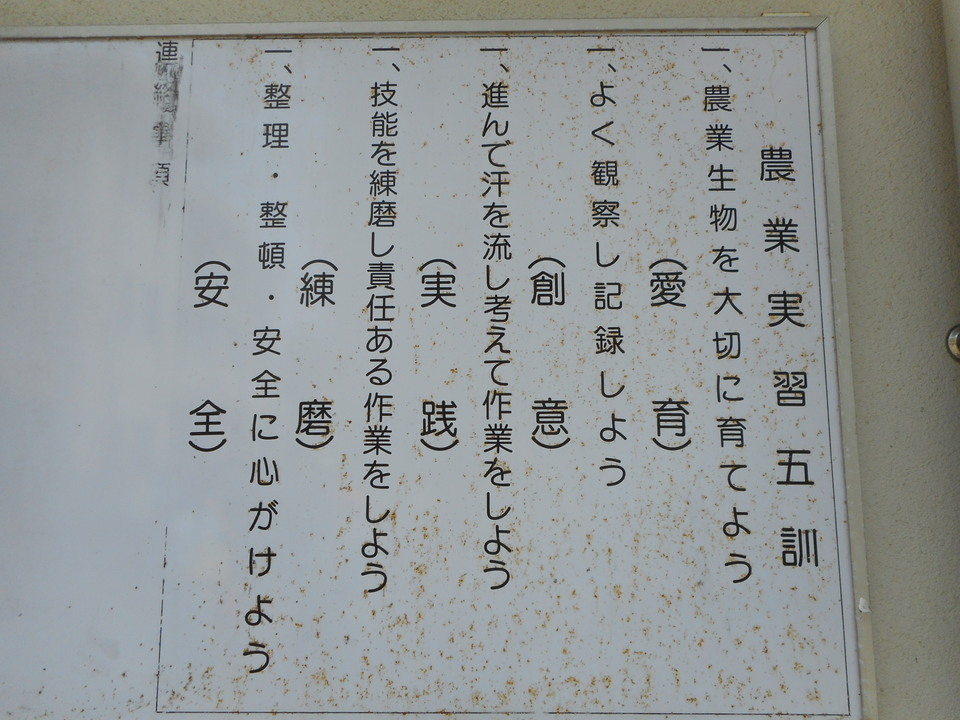 農業実習五訓
一、農業生物を大切に育てよう
（愛育）
一、よく観察し記録しよう
（創意）
一、進んで汗を流し考えて作業をしよう
（実践）
一、技能を練磨し責任ある作業をしよう
（練磨）
一、整理・整頓・安全に心がけよう
（安全）
連絡事項